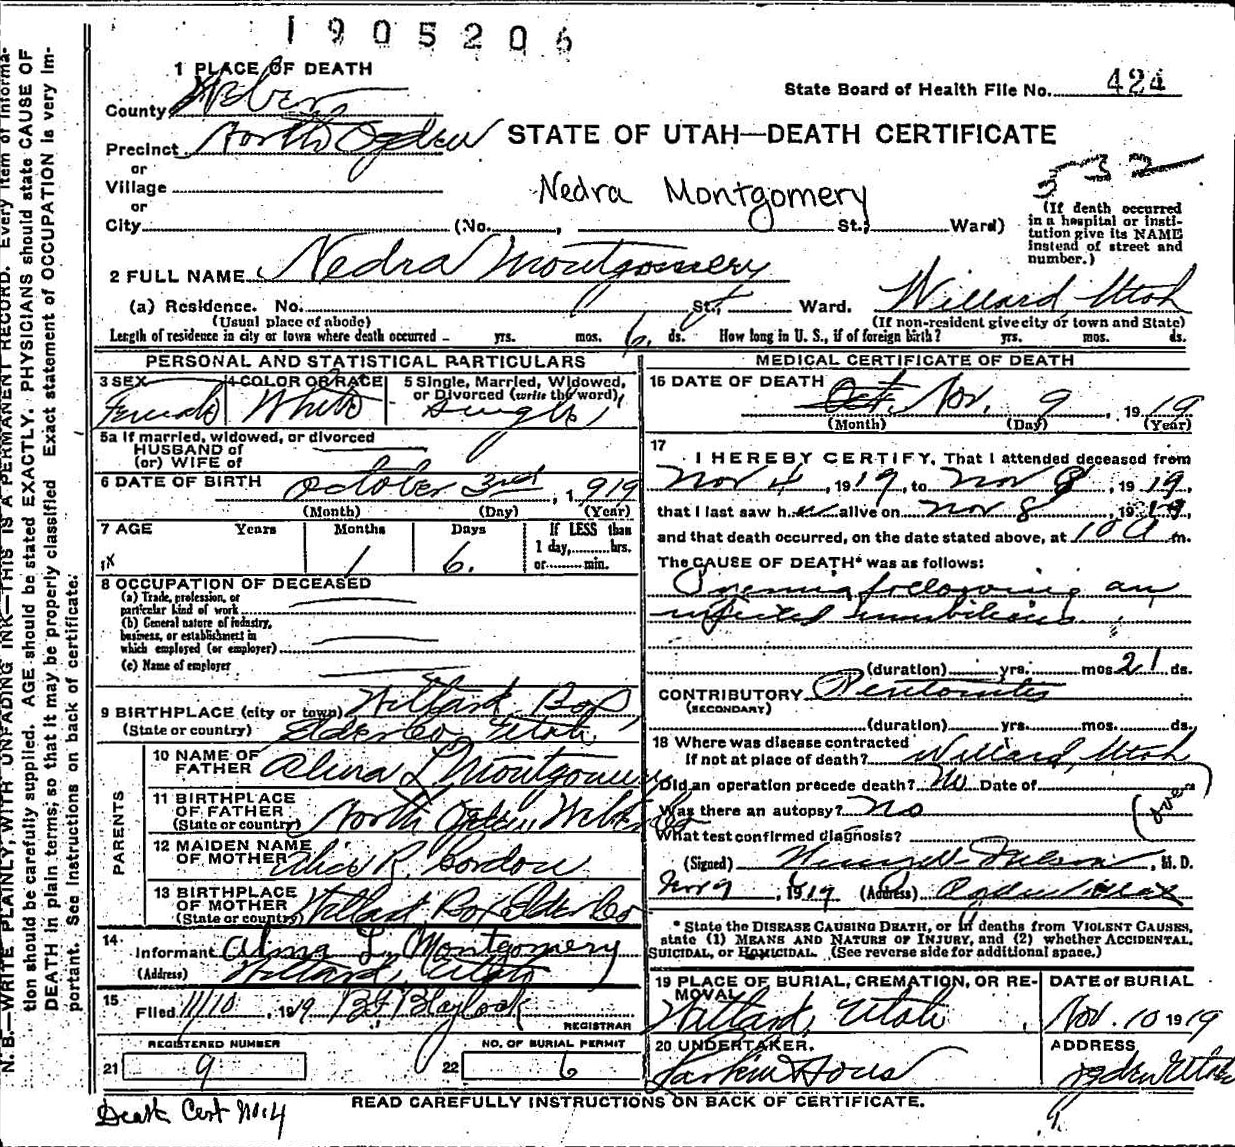 1905206
1 PLACE OF DEATH
State Board of Health File No. 424
County Weber
STATE OF UTAH—DEATH CERTIFICATE
Precinct North Ogden
or
Village
532
Nedra Montgomery
or
City (No. , St.; Ward)
(If death occurred
in a hospital or insti-
tution give its NAME
instead of street and
number.)
2 FULL NAME Nedra Montgomery
(a) Residence. No. St., Ward. Willard, Utah
(Usual place of abode) (If non-resident give city or town and State)
Length of residence in city or town where death occurred – yrs. mos. 6 ds. How long in U. S., if of foreign birth? yrs. mos. ds.
PERSONAL AND STATISTICAL PARTICULARS
3 SEX 4 COLOR OR RACE 5 Single, Married, Widowed,
or Divorced (write the word)
Female White Single
5a If married, widowed, or divorced
HUSBAND of
(or) WIFE of
6 DATE OF BIRTH October 3rd, 1919
(Month) (Day) (Year)
7 AGE Years Months Days If LESS than
1 day, hrs.
or min.
1 6.
8 OCCUPATION OF DECEASED
(a) Trade, profession, or
particular kind of work
(b) General nature of industry,
business, or establishment in
which employed (or employer)
(c) Name of employer
9 BIRTHPLACE (city or town) Willard Box
(State or country) Elder Co, Utah
PARENTS
10 NAME OF
FATHER Alma L Montgomery
11 BIRTHPLACE
OF FATHER
(State or country) North Ogden, Weber Co
12 MAIDEN NAME
OF MOTHER Alice R. Gordon
13 BIRTHPLACE
OF MOTHER
(State or country) Willard Box Elder Co
14
Informant Alma L. Montgomery
(Address) Willard, Utah
15
Filed 11/10, 1919 Blaylock
REGISTRAR
REGISTERED NUMBER NO. OF BURIAL PERMIT
21 9 22 6
MEDICAL CERTIFICATE OF DEATH
16 DATE OF DEATH Oct. Nov. 9, 1919
(Month) (Day) (Year)
17
I HEREBY CERTIFY, That I attended deceased from
Nov 4, 1919, to Nov 8, 1919,
that I last saw her alive on Nov 8, 1919,
and that death occurred, on the date stated above, at 10 a m.
The CAUSE OF DEATH* was as follows:
following an
infected umbilicus.
(duration) yrs. mos. 21 ds.
CONTRIBUTORY Peritonitis
(SECONDARY)
(duration) yrs. mos. ds.
18 Where was disease contracted
If not at place of death? Willard, Utah
Did an operation precede death? No Date of
Was there an autopsy? No (over)
What test confirmed diagnosis?
(Signed) , M. D.
Nov 9, 1919 (Address) Ogden Utah
* State the DISEASE CAUSING DEATH, or in deaths from VIOLENT CAUSES,
state (1) MEANS AND NATURE OF INJURY, and (2) whether ACCIDENTAL,
SUICIDAL, or HOMICIDAL. (See reverse side for additional space.)
19 PLACE OF BURIAL, CREMATION, OR RE-
MOVAL
Willard, Utah
DATE of BURIAL
Nov. 10 1919
20 UNDERTAKER.
Larkin & Sons
ADDRESS
Ogden Utah
READ CAREFULLY INSTRUCTIONS ON BACK OF CERTIFICATE.
Death Cert No. 4
N. B.—WRITE PLAINLY, WITH UNFADING INK—THIS IS A PERMANENT RECORD. Every item of informa-
tion should be carefully supplied. AGE should be stated EXACTLY. PHYSICIANS should state CAUSE OF
DEATH in plain terms, so that it may be properly classified. Exact statement of OCCUPATION is very im-
portant. See instructions on back of certificate.